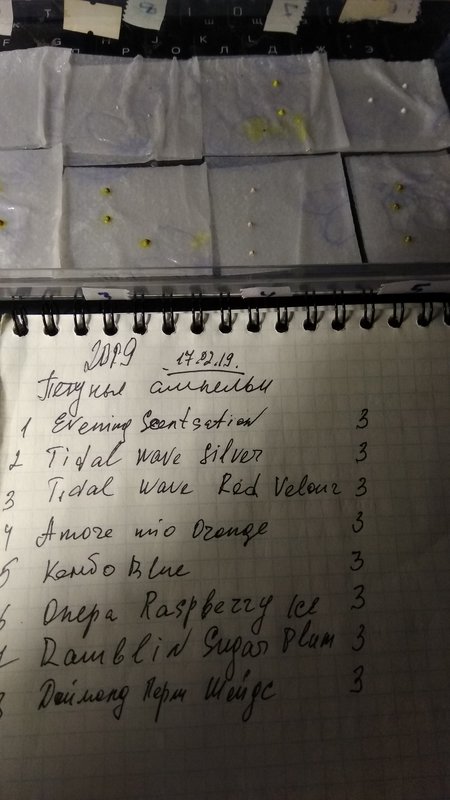 Т Ш Щ
F G H J K L
П Р О Л Д Ж Э
3 4 5
2019 17.02.19.
Петуньи ампельн
1 Evening Scentsation 3
2 Tidal Wave Silver 3
3 Tidal Wave Red Velour 3
4 Amore mio Orange 3
5 Комбо Blue 3
6 Опера Raspberry Ice 3
7 Ramblin Sugar Plum 3
8 Даймонд Перт Шейдс 3